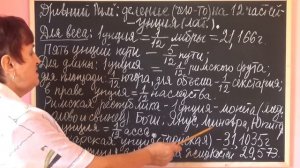 Древний Рим: деление (чего-то) на 12 частей-
унция (лат.).
Для веса: 1 унция = 1/12 либры = 27,166г
Пять унций пути = 5/12 пути,
Для длины: 1 унция = 1/12 римского фута;
для площади 1/12 югера, для объема - 1/12 секстария
в праве унция = 1/12 наследства
Римская республика - 1 унция - монета (медь
Янус, Минерва,
унция = 1/12 асса.
унция - 31,1035г
29,573